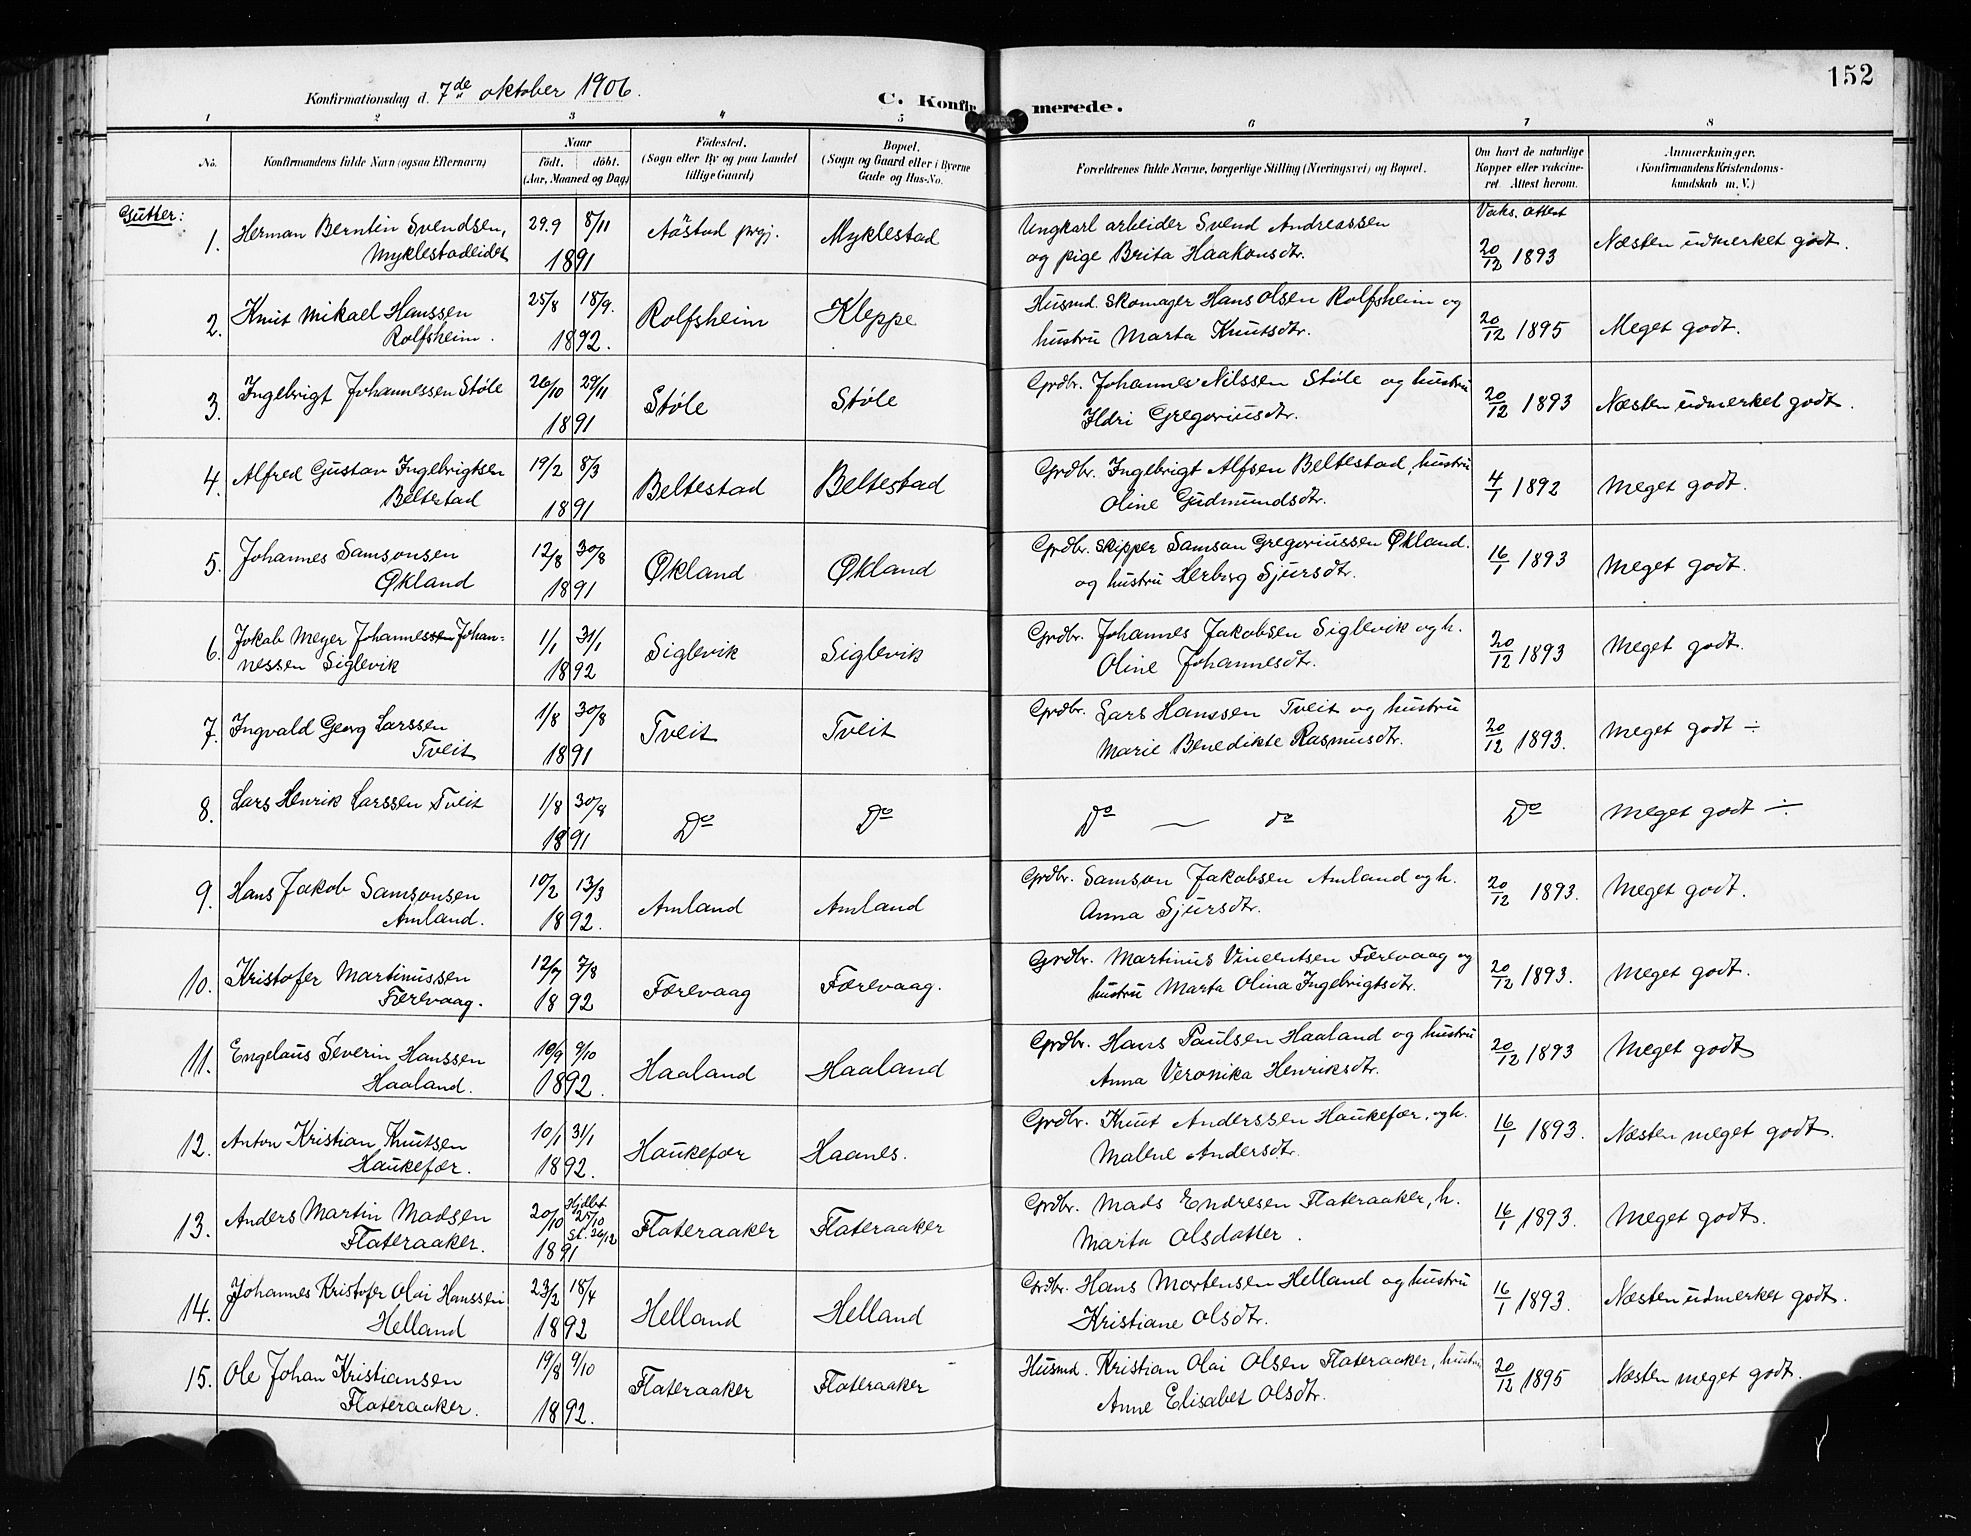 152
Konfirmationsdag d. 7de oktober 1906.
C. Konfirmerede.
1 2 3 4 5 6 7 8
No. Konfirmandens fulde Navn (ogsaa Efternavn) Naar födt. döbt. (Aar, Maaned og Dag) Födested. (Sogn eller By og paa Landet tillige Gaard) Bopæl. (Sogn og Gaard eller i Byerne Gade og Hus-No. Forældrenes fulde Navne, borgerlige Stilling (Næringsvei) og Bopæl. Om havt de naturlige Kopper eller vakcineret. Attest herom. Anmærkninger. (Konfirmandens Kristendomskundskab m. V.)
Gutter:
1. Herman Berntin Svendsen, 29.9 8/11 Myklestad Ungkarl arbeider Svend Andreassen Vaks. attest
Myklestadeidet 1891 og pige Brita Haakonsdtr. 20/12 1893 Næsten udmerket godt.
2. Knut Mikael Hanssen 25/8 18/9. Rolfsheim Kleppe Husmd. Skomager Hans Olsen Rolfsheim og
Rolfsheim. 1892. hustru Marta Knutsdtr. 20/12 1895 Meget godt.
3. Ingebrigt Johannessen Støle 26/10 29/11 Støle Støle Grdbr. Johannes Nilssen Støle og hustru
1891 Ildri Gregoriusdtr. 20/12 1893 Næsten udmerket godt.
4. Alfred Gustav Ingebrigtsen 19/2 8/3 Beltestad Beltestad Grdbr. Ingebrigt Alfsen Beltestad, hustru
Beltestad 1891 Oline Gudmundsdtr. 4/1 1892 Meget godt.
5. Johannes Samsonsen 12/8 30/8 Økland Økland Grdbr. Skipper Samson Gregoriussen Økland.
Økland 1891 og hustru Herborg Sjursdtr. 16/1 1893 Meget godt.
6. Jokab Meyer Johannessen Johan- 1/1 31/1 Siglevik Siglevik Grdbr. Johannes Jakobsen Siglevik og h.
nessen Siglevik 1892 Oline Johannesdtr. 20/12 1893 Meget godt.
7. Ingvald Georg Larssen 1/8 30/8 Tveit Tveit Grdbr. Lars Hanssen Tveit og hustru
Tveit 1891 Marie Benedikte Rasmusdtr. 20/12 1893. Meget godt ÷
8. Lars Henrik Larssen Tveit 1/8 30/8 Do Do Do — do Do Meget godt ÷
1891
9. Hans Jakob Samsonsen 10/2 13/3 Amland Amland Grdbr. Samson Jakobsen Amland og h.
Amland. 1892. Anna Sjursdtr. 20/12 1893. Meget godt.
10. Kristofer Martinussen 12/7 7/8 Færevaag Færevaag. Grdbr. Martinus Vincentsen Færevaag og
Færevaag. 1892 hustru Marta Olina Ingebrigtsdtr. 20/12 1893. Meget godt.
11. Engelaus Severin Hanssen 10/9 9/10 Haaland Haaland Grdbr. Hans Paulsen Haaland og hustru
Haaland. 1892. Anna Veronika Henriksdtr. 20/12 1893 Meget godt
12. Anton Kristian Knutsen 10/1 31/1 Haukefær Haanes. Grdbr. Knut Anderssen Haukefær, og h.
Haukefær. 1892. Malene Andersdtr. 16/1 1893. Næsten meget godt.
13. Anders Martin Madsen 20/10 Hjdbt 25/10 St. 26/12 Flateraaker Flateraaker Grdbr. Mads Endresen Flateraaker, h.
Flateraaker. 1891 Marta Olsdatter. 16/1 1893. Meget godt.
14. Johannes Kristofer Olai Hanssen 23/2 18/4 Helland Helland Grdbr. Hans Mortensen Helland og hustru
Helland 1892 Kristiane Olsdtr. 16/1 1893. Næsten udmerket godt.
15. Ole Johan Kristiansen 19/8 9/10 Flateraaker Flateraaker Husmd. Kristian Olai Olsen Flateraaker, hustru
Flateraaker. 1892. Anne Elisabet Olsdtr. 20/12 1895 Næsten meget godt.